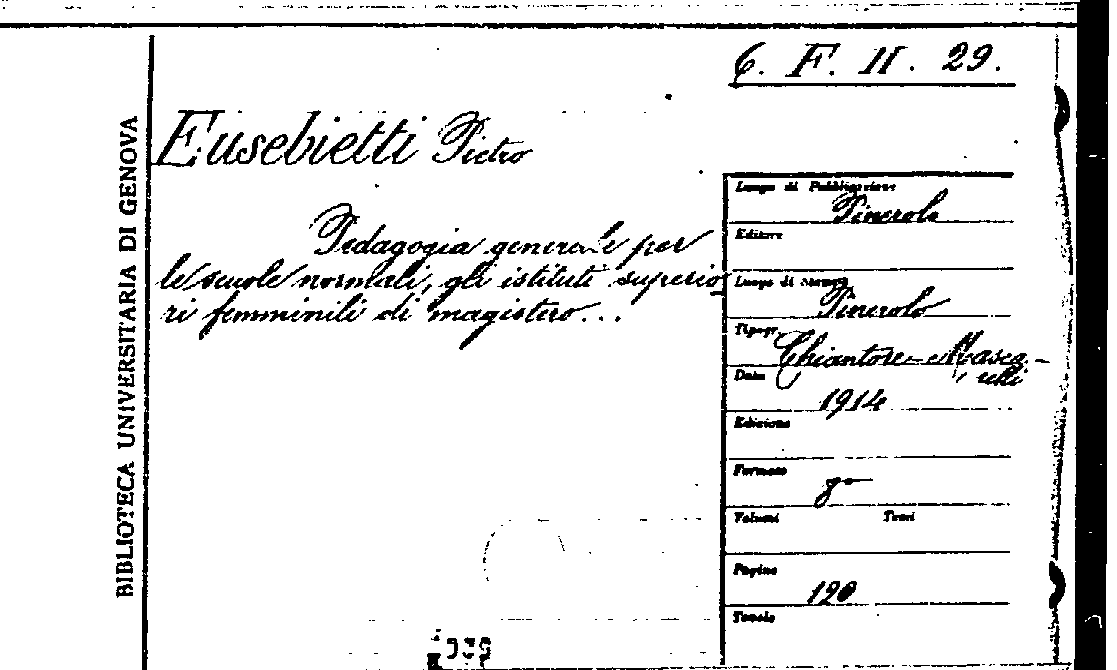 6. F. II. 29.
BIBLIOTECA UNIVERSITARIA DI GENOVA
Eusebietti Pietro
Pedagogia generale per
le scuole normali, gli istituti superio
ri femminili di magistero...
Luogo di Pubblicazione
Pinerolo
Editore
Luogo di Stampa
Pinerolo
Tipogr.
Chiantore - Masca-
relli
Data
1914
Edizione
Formato
8º
Volumi Tomi
Pagine
120
Tavole